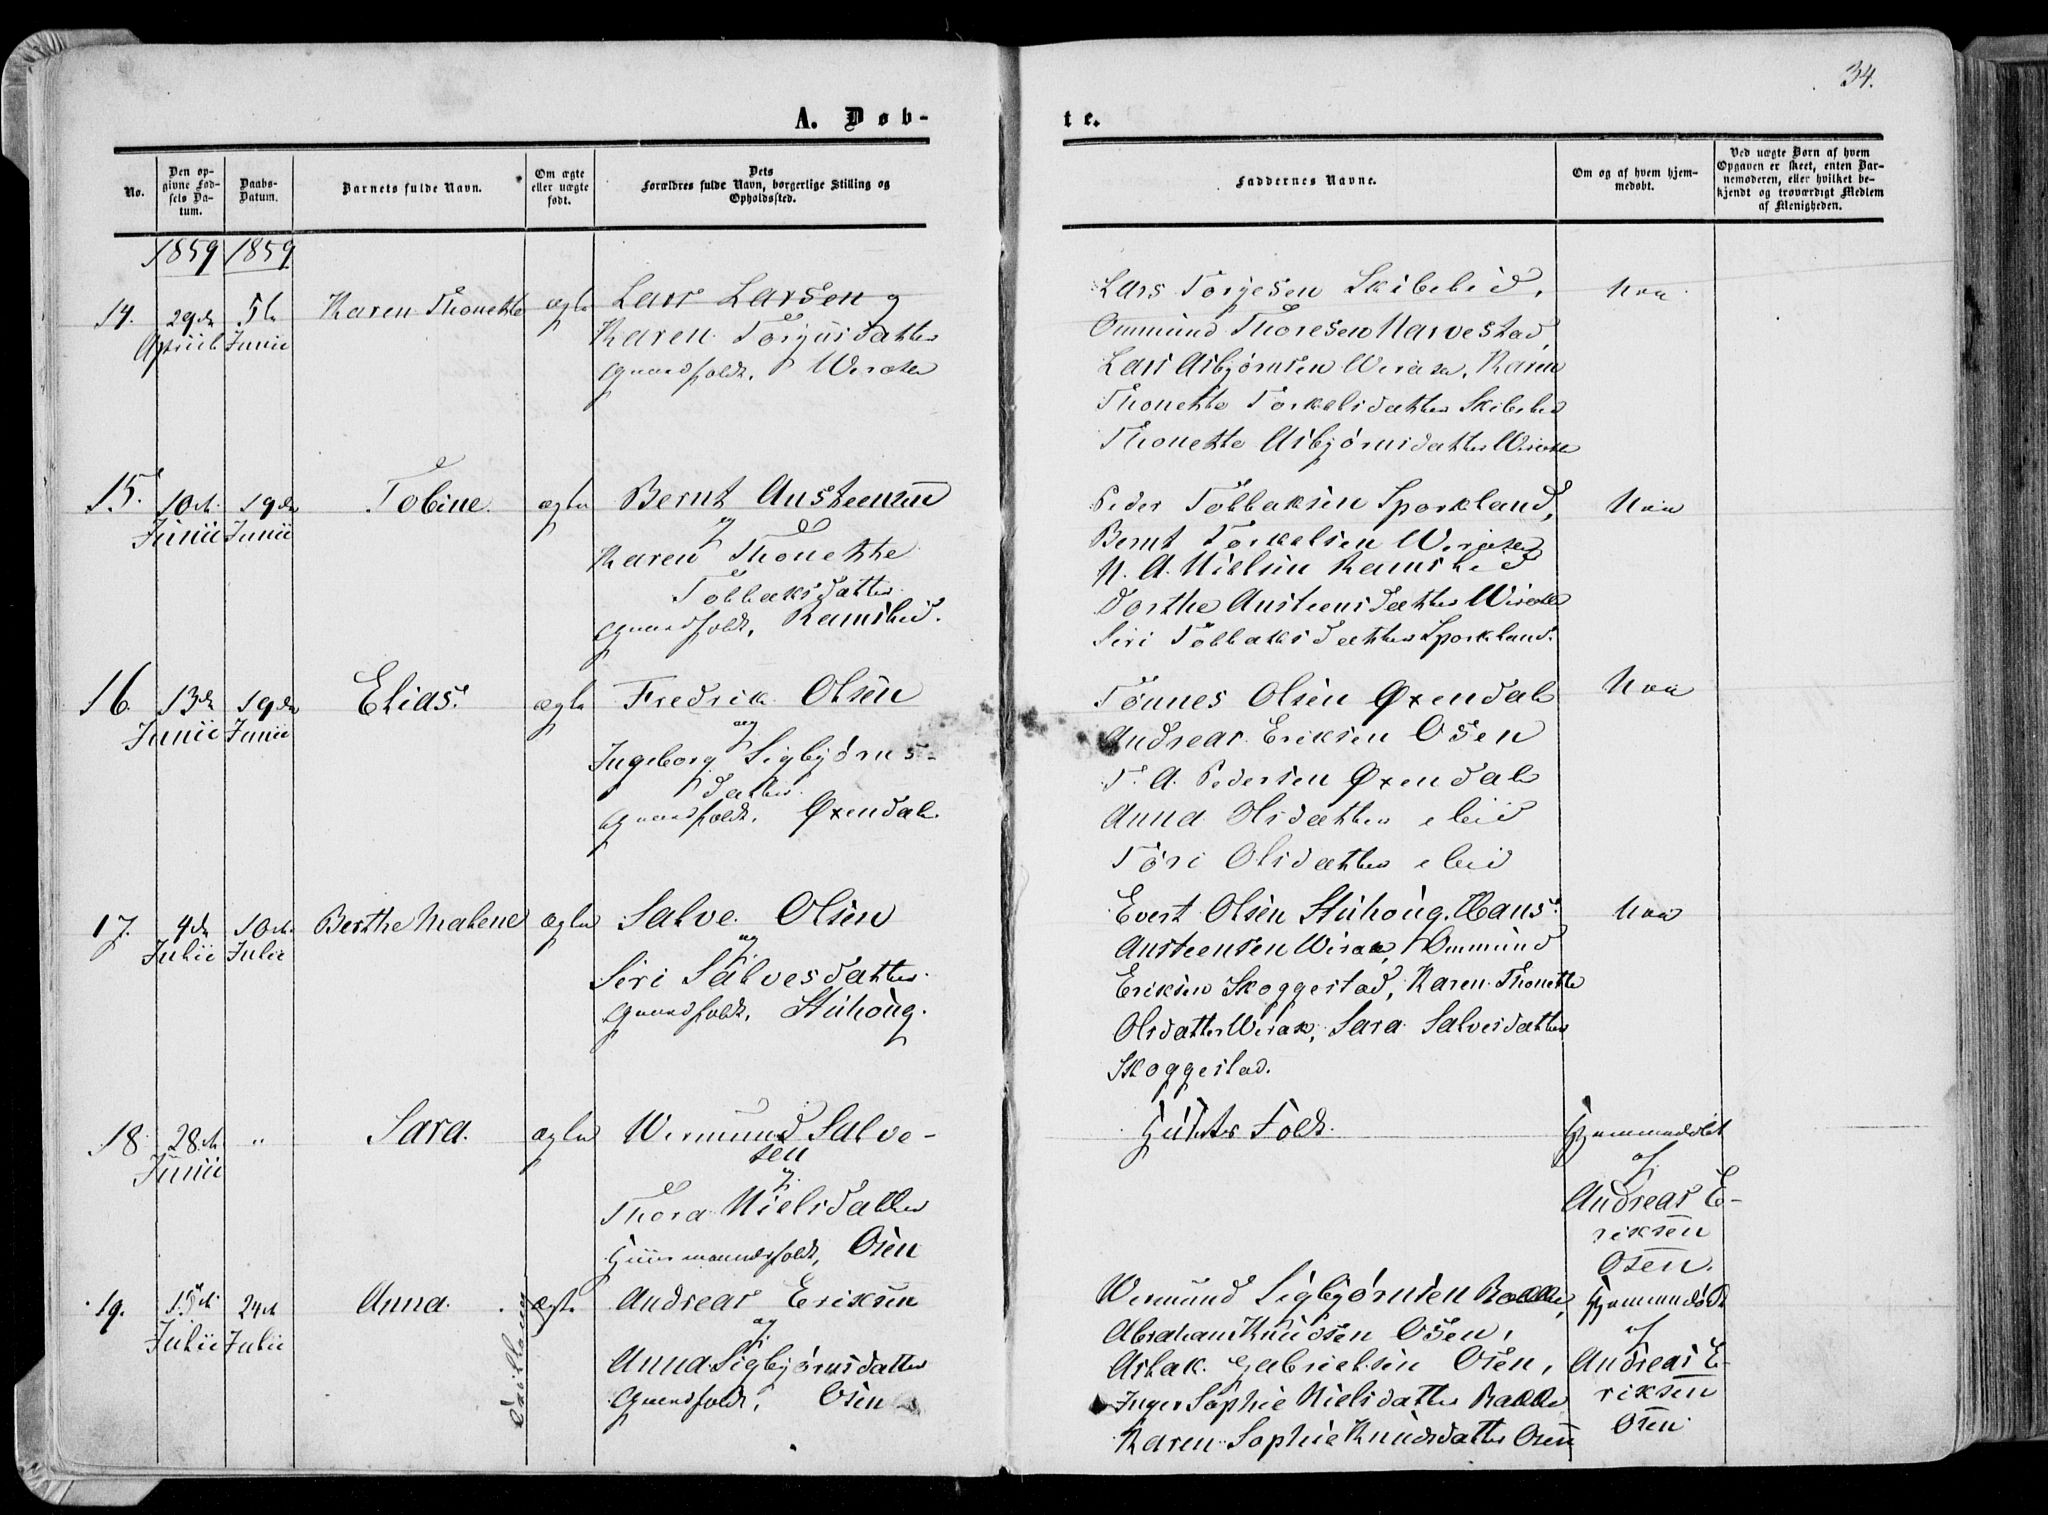 34.
A. Døb-
te.
No.
Den op-
givne Fød-
sels Da-
tum.
Daabs-
Datum.
Barnets fulde Navn.
Om ægte
eller uægte
født.
Dets
Forældres fulde Navn, borgerlige Stilling og
Opholdssted.
Faddernes Navne.
Om og af hvem hjem-
medøbt.
Ved uægte Børn af hvem
Opgaven er skeet, enten Bar-
nemoderen, eller hvilket be-
kjendt og troværdigt Medlem
af Menigheden.
1859 1859
14.
29de
Apriil
5te
Junii
Karen Thonette
ægte
Lars Larsen og
Karen Torjusdatter
Gaardfolk, Werake
Lars Torjesen Skibeleid,
Ommund Thoresen Narvestad,
Lars Asbjørnsen Werake, Karen
Thonette Torkelsdatter Skibeleid
Thonette Asbjørnsdatter Werake
15.
10de
Junii
19de
Junii
Tobine.
ægte
Bernt Austeensen
og
Karen Thonette
Tollaksdatter
Gaardfolk, Ramsleid.
Peder Tollaksen Sporkland,
Bernt Torkelsen Werake
N. A. Nielsen Ramsleid
Dorthe Austeensdatter Werake
Siri Tollaksdatter Sporkland.
16.
13de
Junii
19de
Junii
Elias.
ægte
Fredrik Olsen
og
Ingeborg Sigbjørns-
datter
Gaardfolk, Øxendal.
Tønnes Olsen Øxendal
Andreas Eriksen Osen
T. A. Pedersen Øxendal
Anna Olsdatter ibid
Tøri Olsdatter ibid
17.
4de
Julii
10de
Julii
Berthe Malene
ægte
Salve Olsen
og
Siri Salvesdatter
Gaardfolk, Stuhoug.
Evert Olsen Stuhoug. Hans
Austeensen Werak, Ommund
Eriksen Skoggestad, Karen Thonette
Olsdatter Werak, Sara Salvesdatter
Skoggestad.
18
28de
Junii
"
Sara.
ægte
Wermund Salve-
sen
og
Thora Nielsdatter
Huusmandsfolk, Osen
Hjemmedøbt
af
Andreas E-
riksen
Osen.
19.
15de
Julii
24de
Julii
Anna.
ægte
Andreas Eriksen
og
Anna Sigbjørnsdatter
Gaardfolk, Osen
Wermund Sigbjørnsen
Abraham Knudsen Osen,
Aslak Gabrielsen Osen,
Inger Sophie Nielsdatter
Karen Sophie Knudsdatter Osen
Hjemmedøbt
af
Andreas E-
riksen
Osen